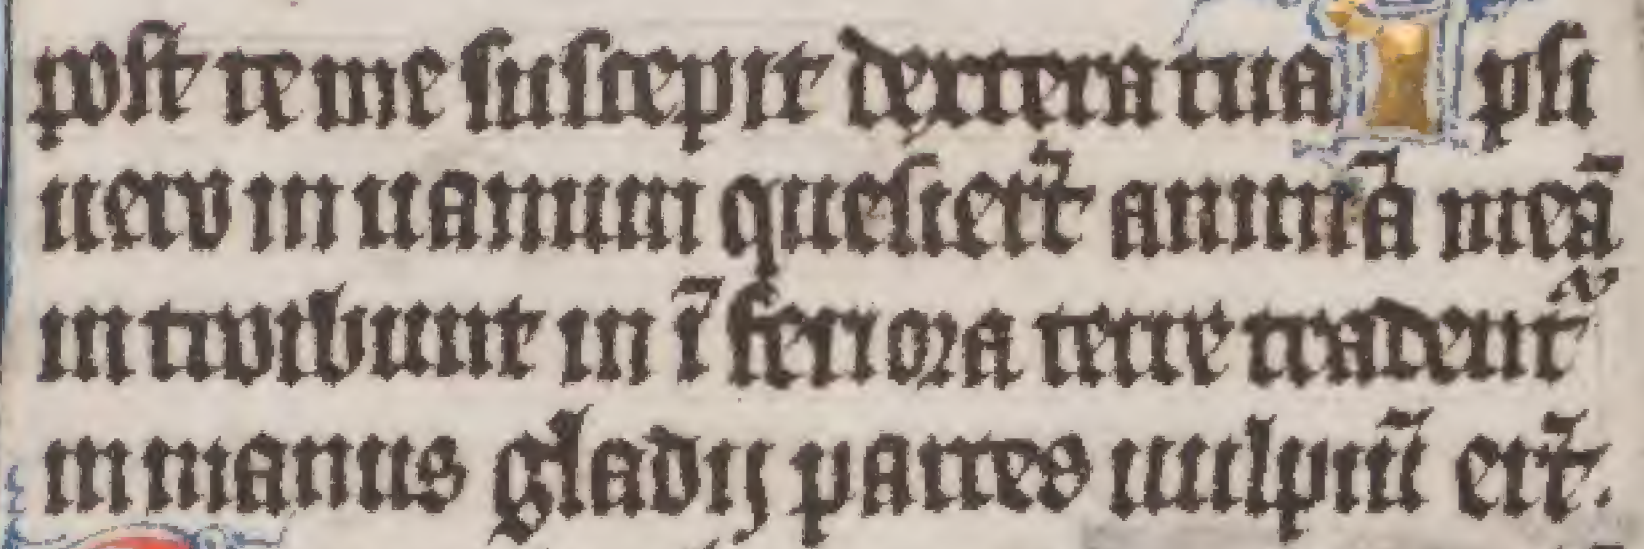 post te me suscepit dextera tua Ipsi
uero in uanum quesiert̃ animã meã
introibunt in ĩferiora terre tradent᷑
in manus gladij partes uulpiũ ert̃.